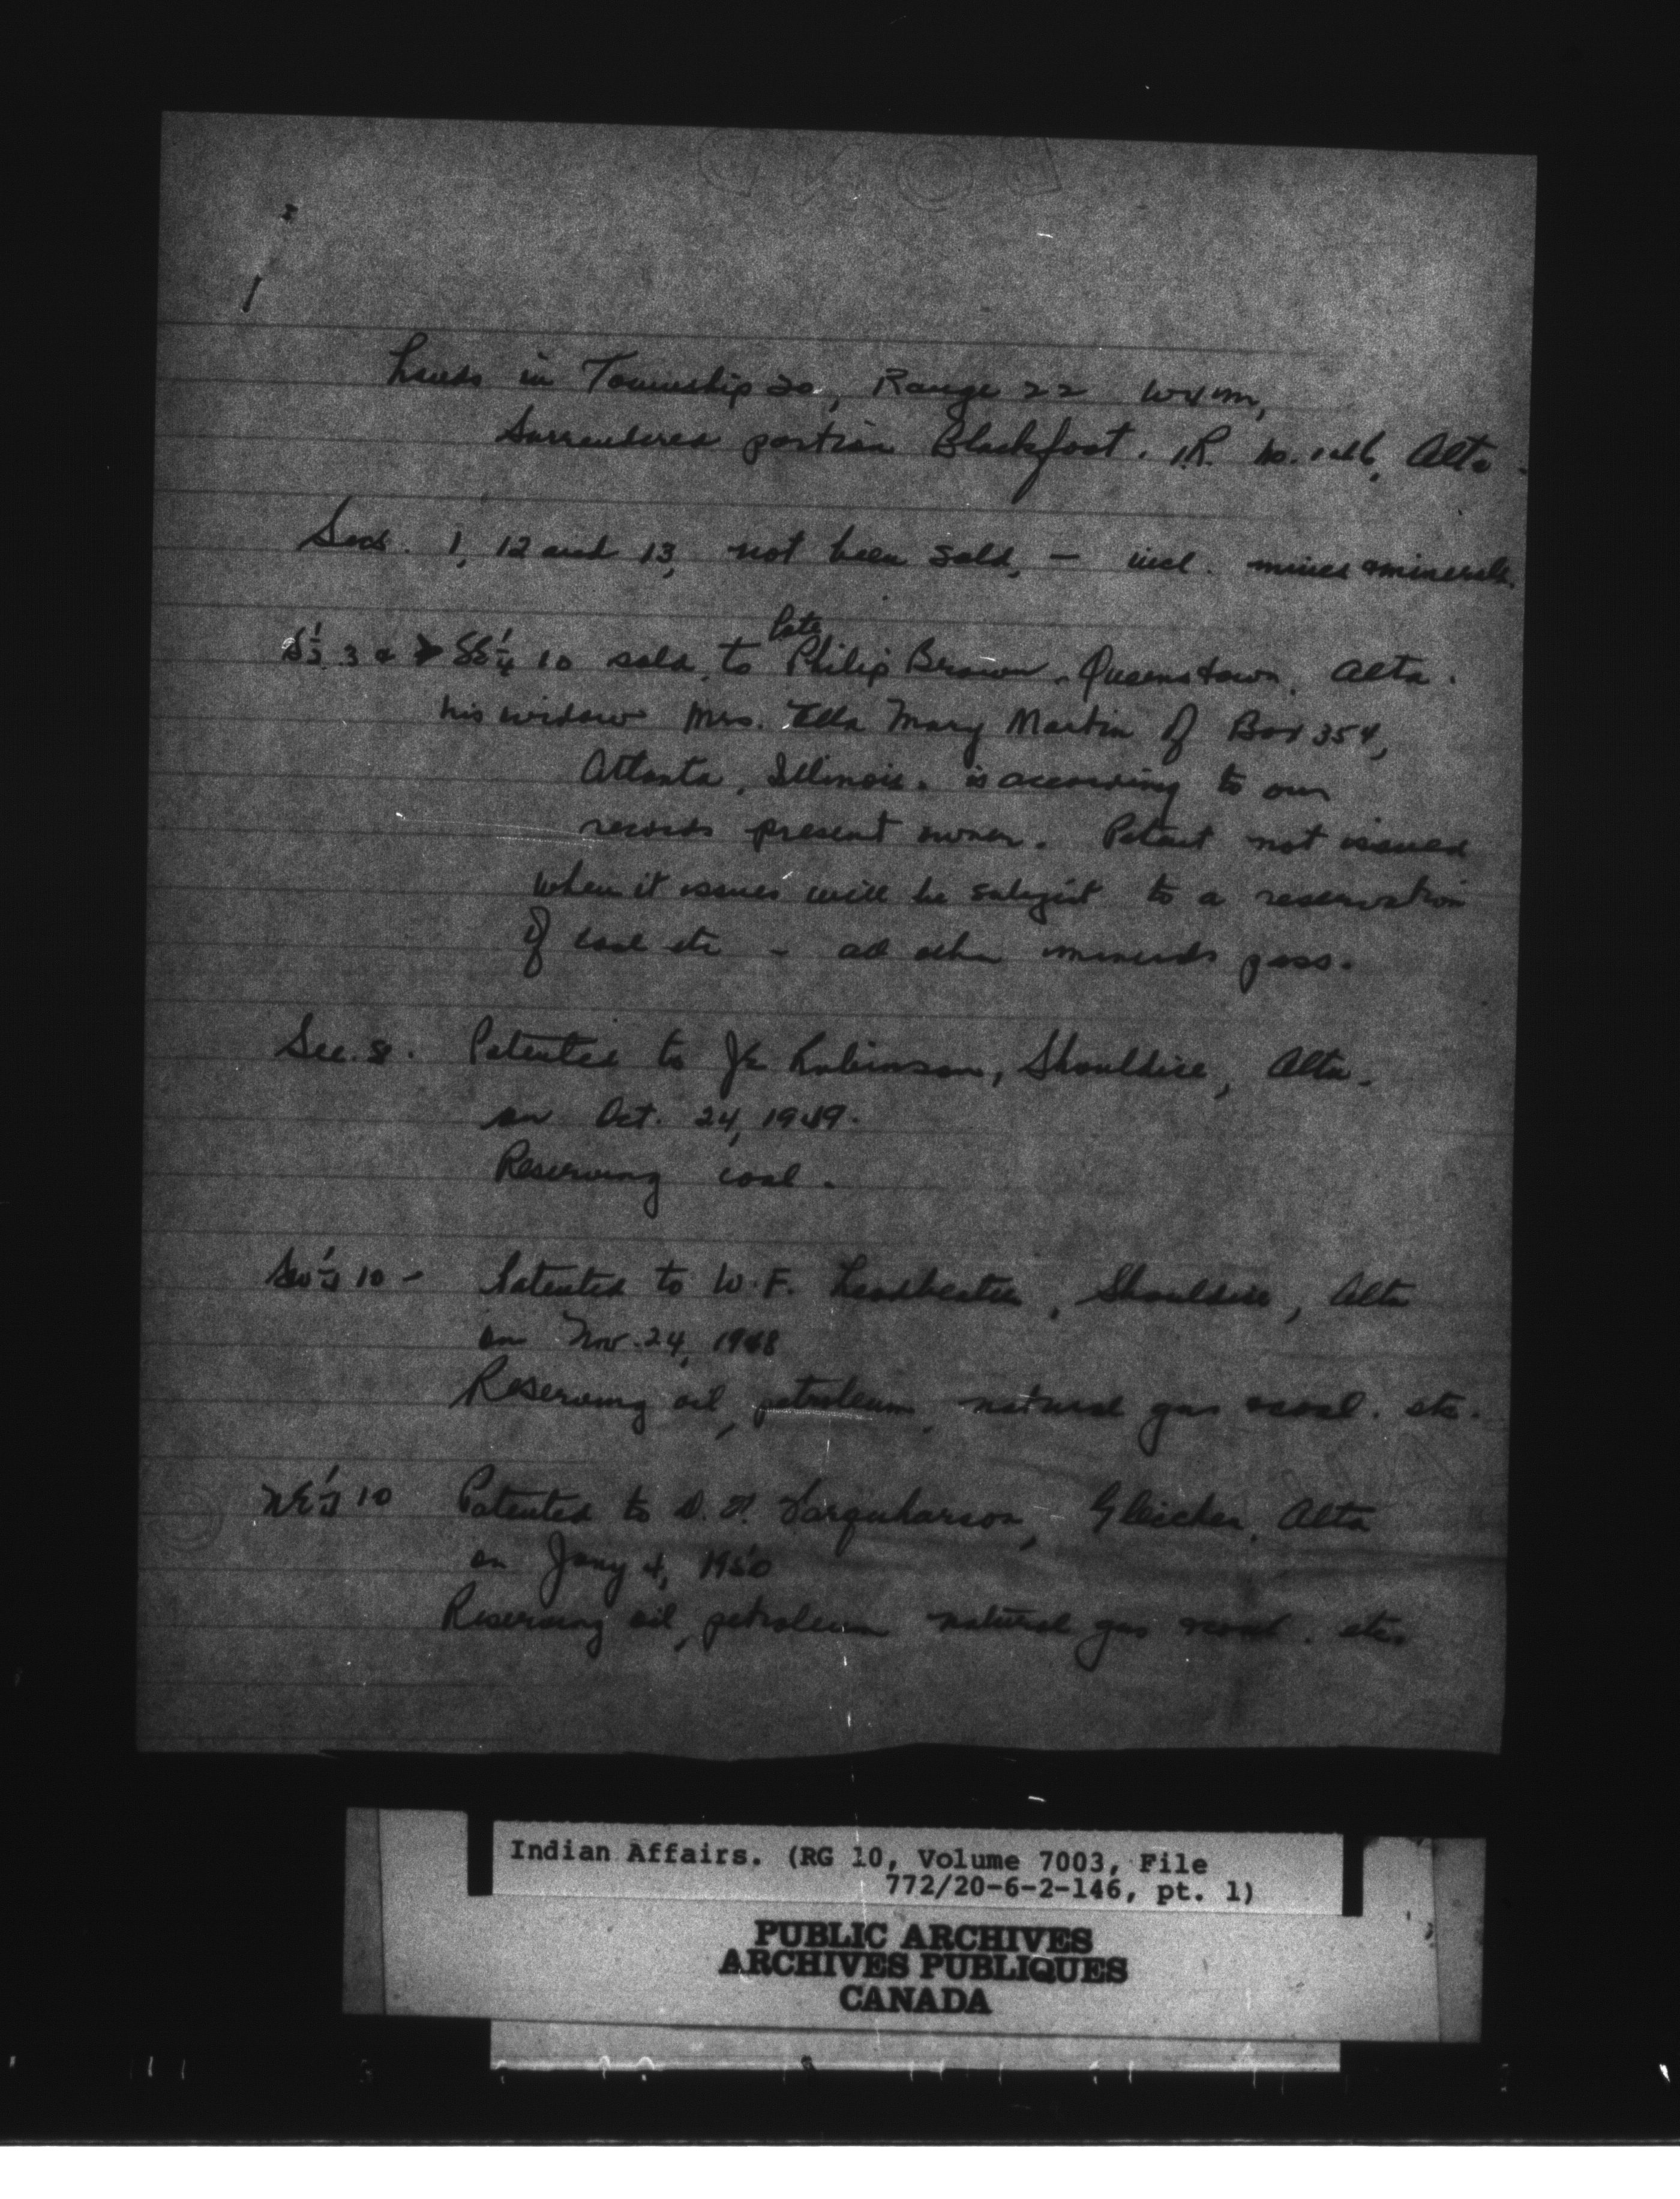 BOND
Lands in Township 20, Range 22 W4M,
Surrendered portion Blackfoot. I.R. No. 146, Alta.
Secs. 1, 12 and 13, not been sold, - incl. mines & minerals.
S½ 3 & SE¼ 10 sold to late Philip Brown, Queenstown, Alta.
his widow Mrs. Ella Mary Martin of Box 354,
Atlanta, Illinois. is according to our
records present owner. Patent not issued
when it issues will be subject to a reservation
of coal etc - all other minerals pass.
Sec. 8. Patented to Robinson, Shouldice, Alta.
on Oct. 24, 1949.
Reserving coal.
SW¼ 10 - Patented to W.F. Leadbeater, Shouldice, Alta
on Nov. 24, 1948
Reserving oil, petroleum, natural gas & coal. etc.
NE¼ 10 Patented to D. H. Farquharson, Gleichen, Alta
on Jany 4, 1950
Reserving oil, petroleum natural gas & coal. etc.
Indian Affairs. (RG 10, Volume 7003, File
772/20-6-2-146, pt. 1)
PUBLIC ARCHIVES
ARCHIVES PUBLIQUES
CANADA